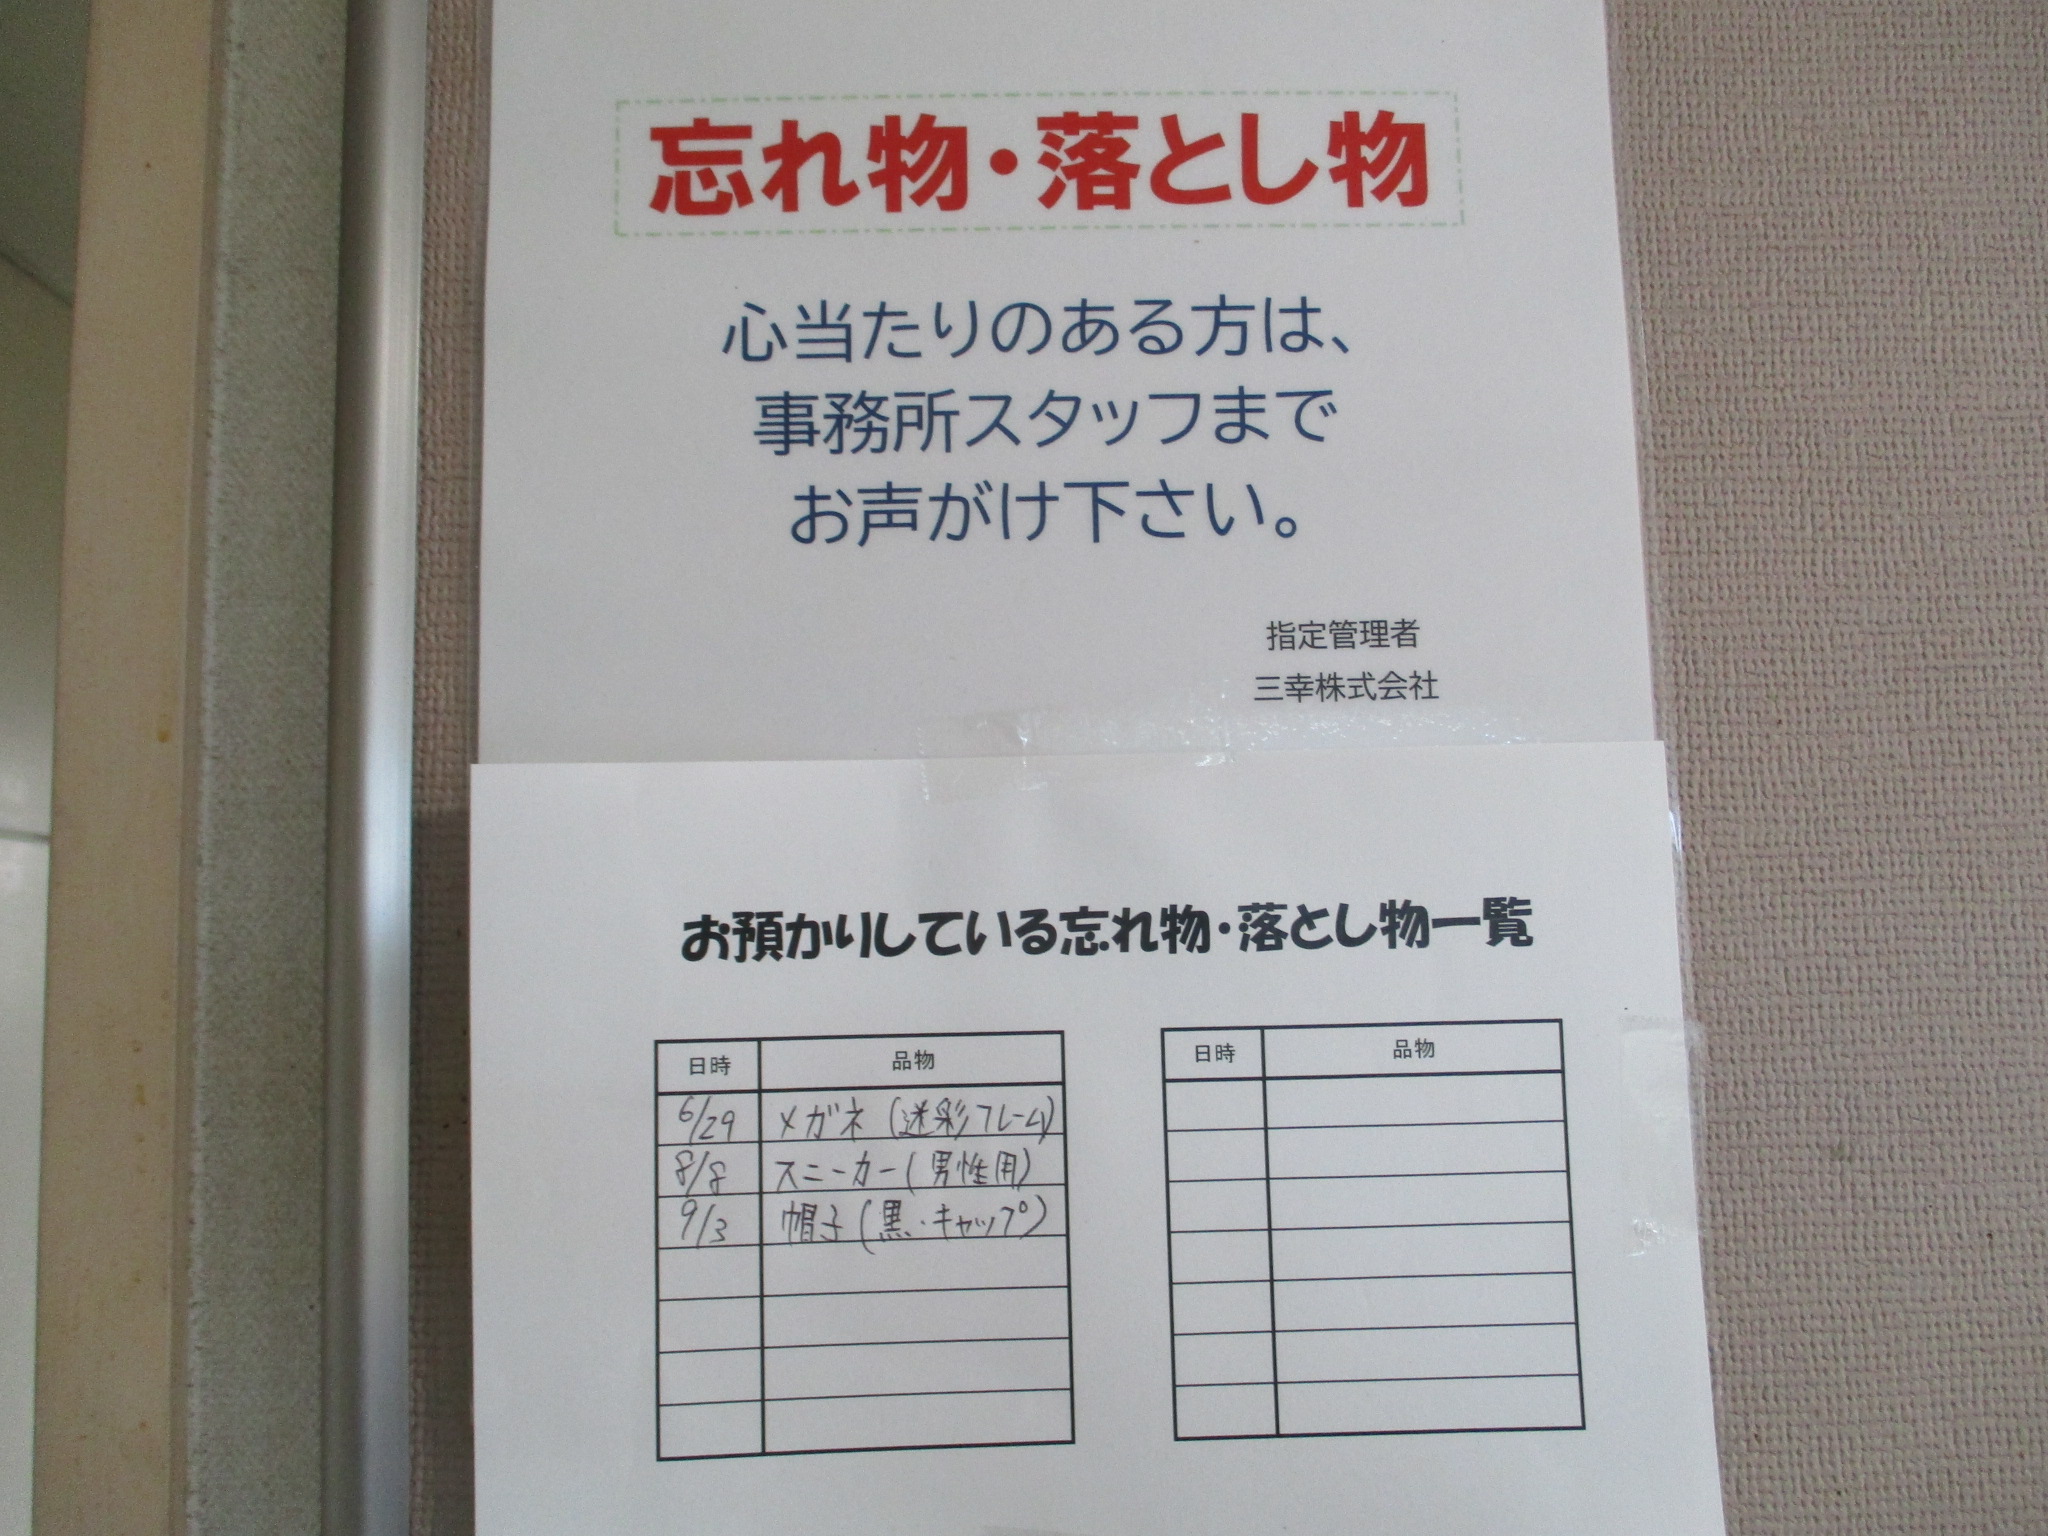 忘れ物・落とし物
心当たりのある方は、
事務所スタッフまで
お声がけ下さい。
指定管理者
三幸株式会社
お預かりしている忘れ物・落とし物一覧
日時 品物
6/29 メガネ(迷彩フレーム)
8/8 スニーカー(男性用)
9/3 帽子(黒・キャップ)
日時 品物